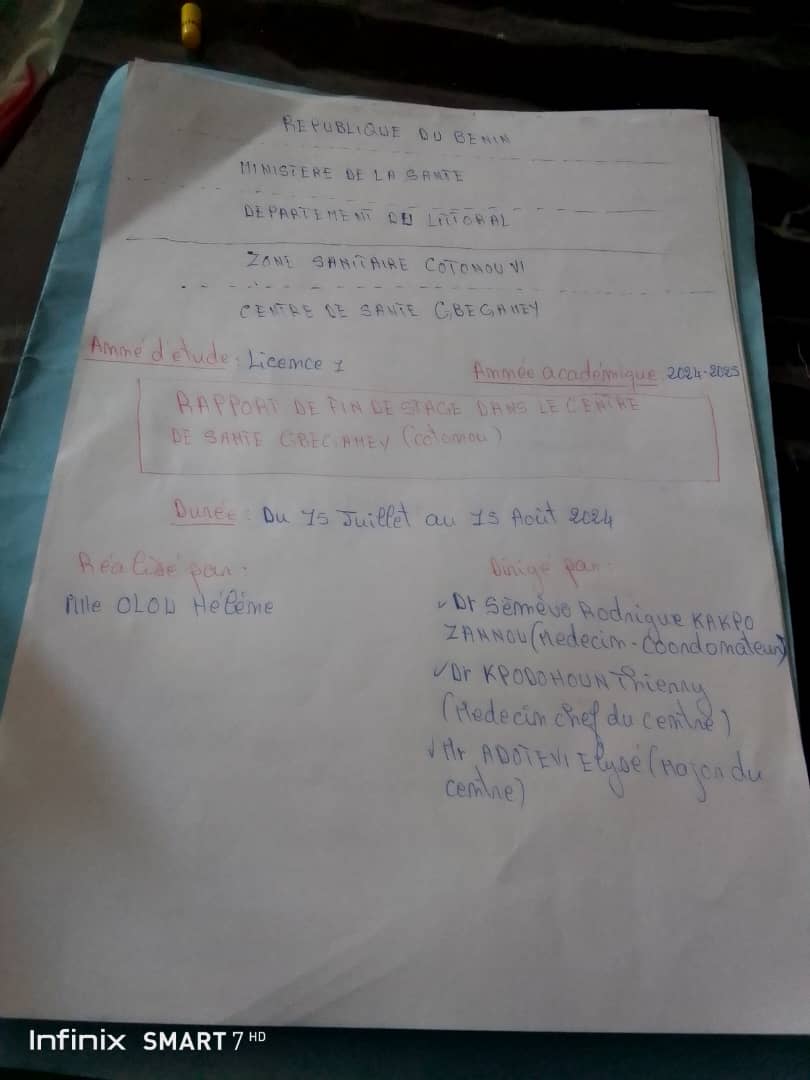 REPUBLIQUE DU BENIN
MINISTERE DE LA SANTE
DEPARTEMENT DU LITTORAL
ZONE SANITAIRE COTONOU VI
CENTRE DE SANTE GBEGAMEY
Année d'étude : Licence 1
Année académique 2024-2025
RAPPORT DE FIN DE STAGE DANS LE CENTRE
DE SANTE GBEGAMEY (cotonou)
Durée : Du 15 Juillet au 15 Août 2024
Réalisé par :
Dirigé par :
Mlle OLOU Hélène
✓ Dr Sèmèvo Rodrigue KAKPO
ZANNOU (Medecin-Coordonateur)
✓ Dr KPODOHOUN Thierry
(Medecin chef du centre)
✓ Mr ADOTEVI Elysé (Major du
centre)
Infinix SMART 7 HD